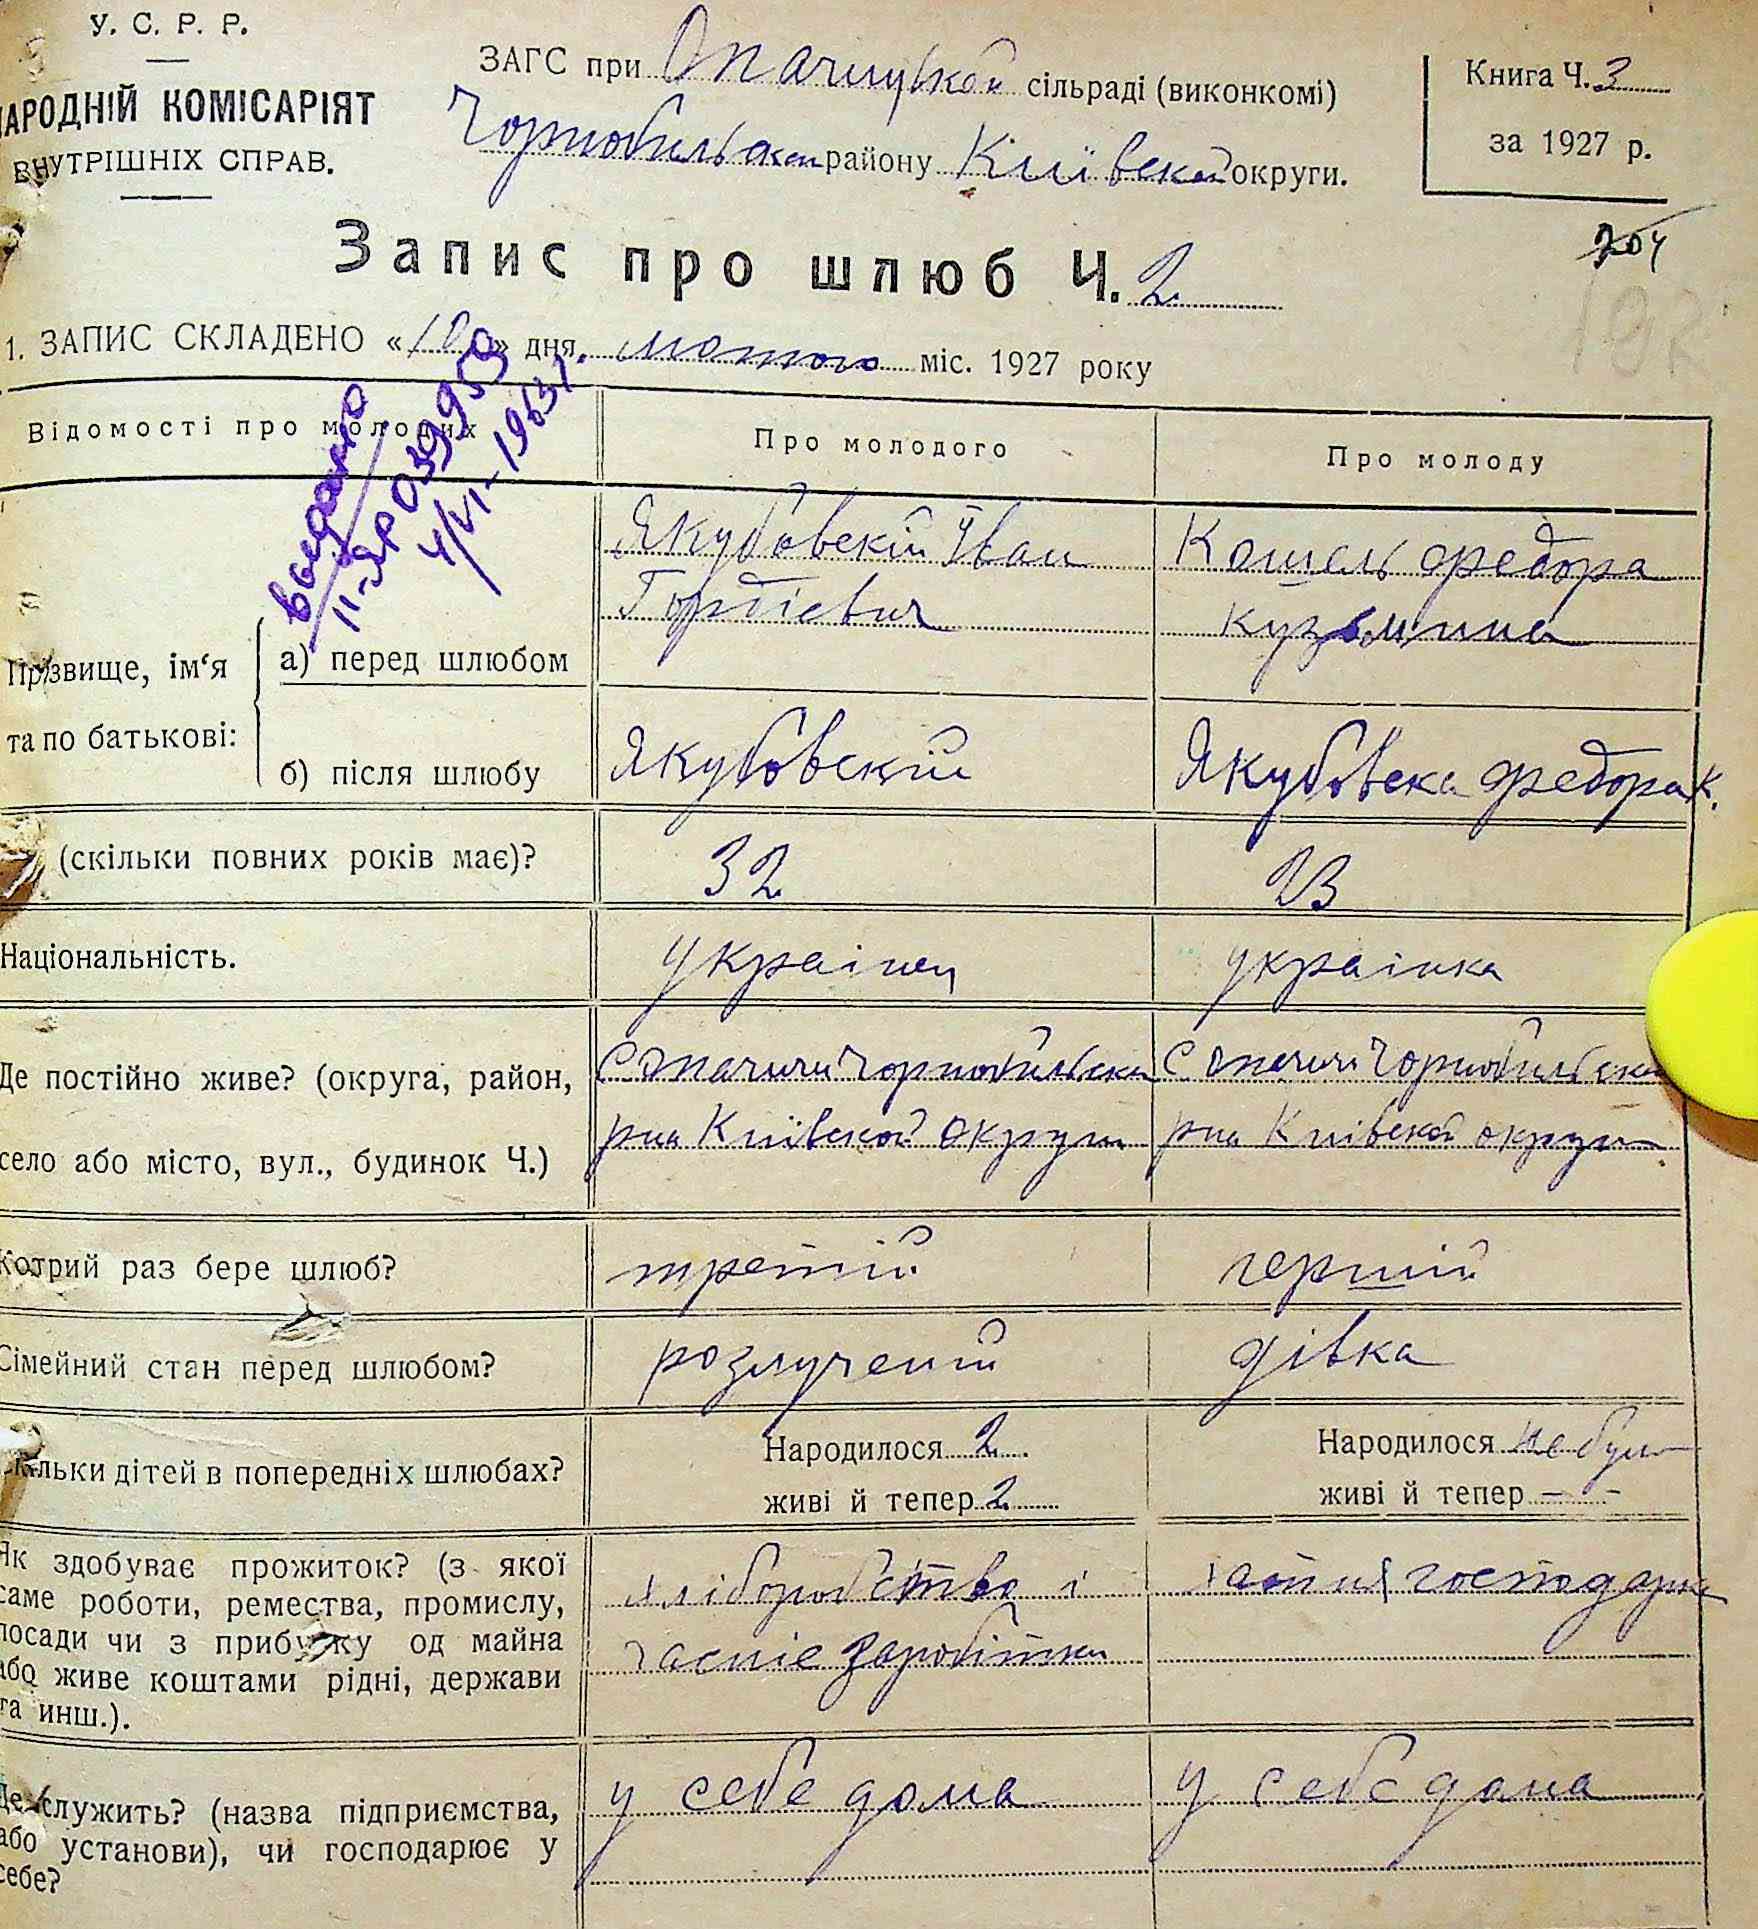 У. С. Р. Р.
НАРОДНІЙ КОМІСАРІЯТ
ВНУТРІШНІХ СПРАВ.
ЗАГС при Опачицкой сільраді (виконкомі)
Чорнобильскаи району Київской округи.
Книга Ч. 3
за 1927 р.
204
Запис про шлюб Ч. 2
1. ЗАПИС СКЛАДЕНО «10» дня. лютого міс. 1927 року
выдано
II-ЯР 039959
4/VI-1963 г.
Відомості про молодих
Про молодого
Про молоду
Прізвище, ім‘я
та по батькові:
а) перед шлюбом
Якубовский Іван
Гордієвич
Кошель Федора
Кузьмина
б) після шлюбу
Якубовский
Якубовска Федора К.
(скільки повних років має)?
32
23
Національність.
українец
українка
Де постійно живе? (округа, район,
село або місто, вул., будинок Ч.)
С Опачичи Чорнобильски
рна Київской округи
С Опачичи Чорнобильски
рна Київской округи
Котрий раз бере шлюб?
третій
перший
Сімейний стан перед шлюбом?
розлучений
дівка
Скільки дітей в попередніх шлюбах?
Народилося 2
живі й тепер 2
Народилося не було
живі й тепер - -
Як здобуває прожиток? (з якої
саме роботи, ремества, промислу,
посади чи з прибутку од майна
або живе коштами рідні, держави
та инш.).
хліборобство і
часніе заробітки
хатня господарка
Де служить? (назва підприємства,
або установи), чи господарює у
себе?
у себе дома
у себе дома